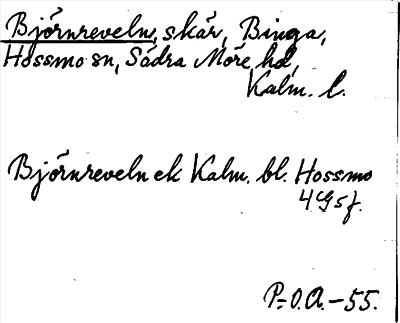 Björnreveln, skär, Binga,
Hossmo sn, Södra Möre hd,
Kalm. l.
Björnreveln ek Kalm. bl. Hossmo
4 g 5 f.
P.-O.A.-55.